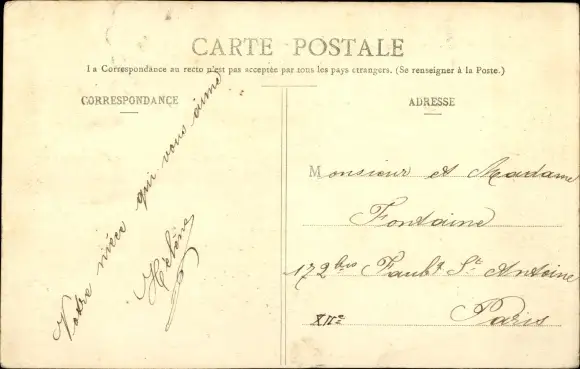 CARTE POSTALE
La Correspondance au recto n'est pas acceptée par tous les pays étrangers. (Se renseigner à la Poste.)
CORRESPONDANCE
Votre nièce qui vous aime
Hélène
ADRESSE
Monsieur et Madame
Fontaine
172 bis Faubg St Antoine
Paris
XIIe